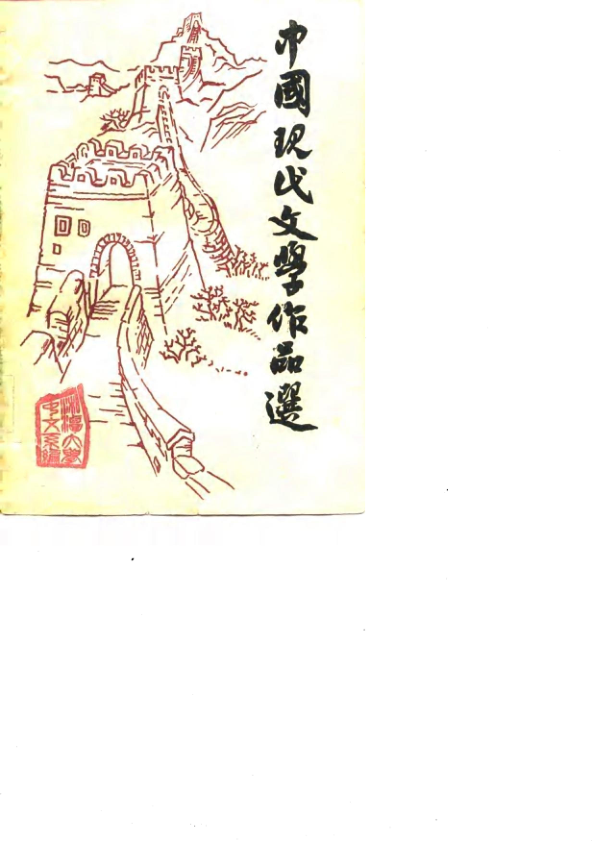 中國现代文學作品選
湘潭大學
中文系編